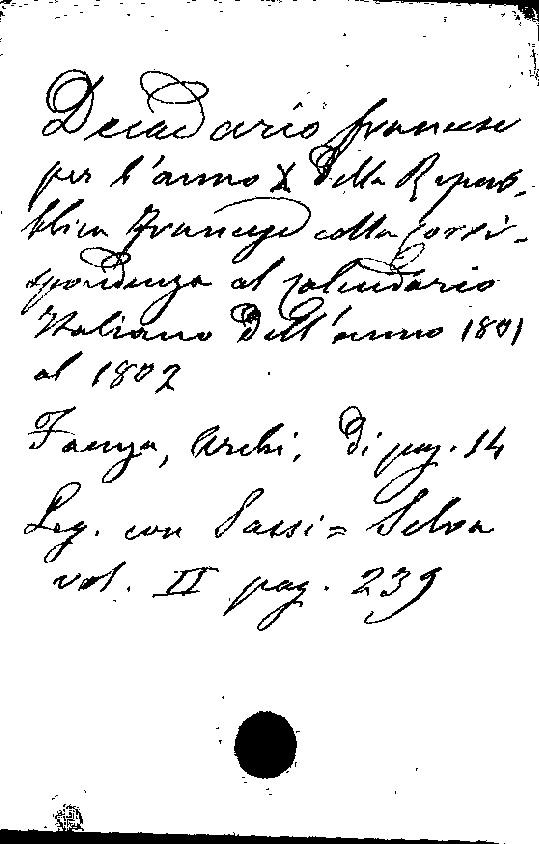 Decadario francese
per l'anno X della Repub-
blica Francese colla corri-
spondenza al calendario
Italiano dell'anno 1801
al 1802
Faenza, Archi, di pag. 14
Leg. con Sassi = Selva
vol. II pag. 239